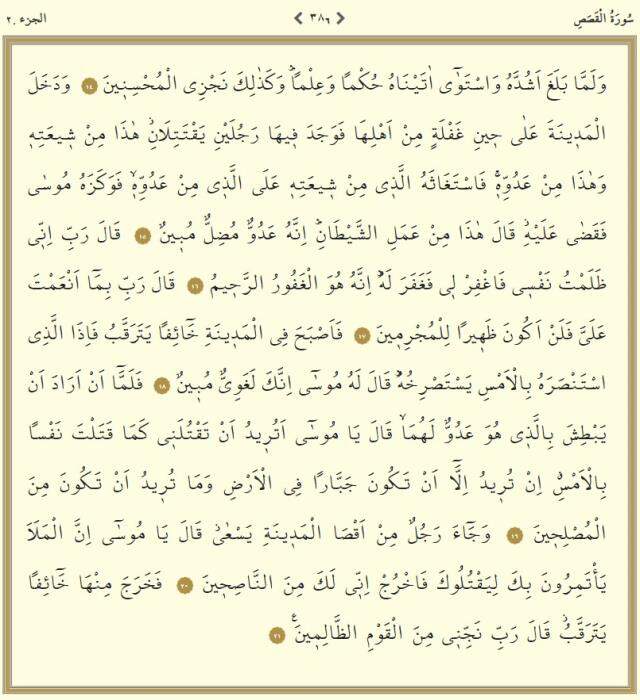 سُورَةُ الْقَصَصِ ❮ ٣٨٦ ❯ الجزء ٢٠
وَلَمَّا بَلَغَ اَشُدَّهُ وَاسْتَوٰٓى اٰتَيْنَاهُ حُكْمًا وَعِلْمًاۜ وَكَذٰلِكَ نَجْزِى الْمُحْسِنٖينَ ١٤ وَدَخَلَ
الْمَدٖينَةَ عَلٰى حٖينِ غَفْلَةٍ مِنْ اَهْلِهَا فَوَجَدَ فٖيهَا رَجُلَيْنِ يَقْتَتِلَانِۘ هٰذَا مِنْ شٖيعَتِهٖ
وَهٰذَا مِنْ عَدُوِّهٖۚ فَاسْتَغَاثَهُ الَّذٖى مِنْ شٖيعَتِهٖ عَلَى الَّذٖى مِنْ عَدُوِّهٖۙ فَوَكَزَهُ مُوسٰى
فَقَضٰى عَلَيْهِۘ قَالَ هٰذَا مِنْ عَمَلِ الشَّيْطَانِۜ اِنَّهُ عَدُوٌّ مُضِلٌّ مُبٖينٌ ١٥ قَالَ رَبِّ اِنّٖى
ظَلَمْتُ نَفْسٖى فَاغْفِرْ لٖى فَغَفَرَ لَهُۜ اِنَّهُ هُوَ الْغَفُورُ الرَّحٖيمُ ١٦ قَالَ رَبِّ بِمَٓا اَنْعَمْتَ
عَلَىَّ فَلَنْ اَكُونَ ظَهٖيرًا لِلْمُجْرِمٖينَ ١٧ فَاَصْبَحَ فِى الْمَدٖينَةِ خَٓائِفًا يَتَرَقَّبُ فَاِذَا الَّذِى
اسْتَنْصَرَهُ بِالْاَمْسِ يَسْتَصْرِخُهُۜ قَالَ لَهُ مُوسٰٓى اِنَّكَ لَغَوِىٌّ مُبٖينٌ ١٨ فَلَمَّٓا اَنْ اَرَادَ اَنْ
يَبْطِشَ بِالَّذٖى هُوَ عَدُوٌّ لَهُمَاۙ قَالَ يَا مُوسٰٓى اَتُرٖيدُ اَنْ تَقْتُلَنٖى كَمَا قَتَلْتَ نَفْسًا
بِالْاَمْسِۗ اِنْ تُرٖيدُ اِلَّٓا اَنْ تَكُونَ جَبَّارًا فِى الْاَرْضِ وَمَا تُرٖيدُ اَنْ تَكُونَ مِنَ
الْمُصْلِحٖينَ ١٩ وَجَٓاءَ رَجُلٌ مِنْ اَقْصَا الْمَدٖينَةِ يَسْعٰىۘ قَالَ يَا مُوسٰٓى اِنَّ الْمَلَاَ
يَأْتَمِرُونَ بِكَ لِيَقْتُلُوكَ فَاخْرُجْ اِنّٖى لَكَ مِنَ النَّاصِحٖينَ ٢٠ فَخَرَجَ مِنْهَا خَٓائِفًا
يَتَرَقَّبُۘ قَالَ رَبِّ نَجِّنٖى مِنَ الْقَوْمِ الظَّالِمٖينَࣖ ٢١